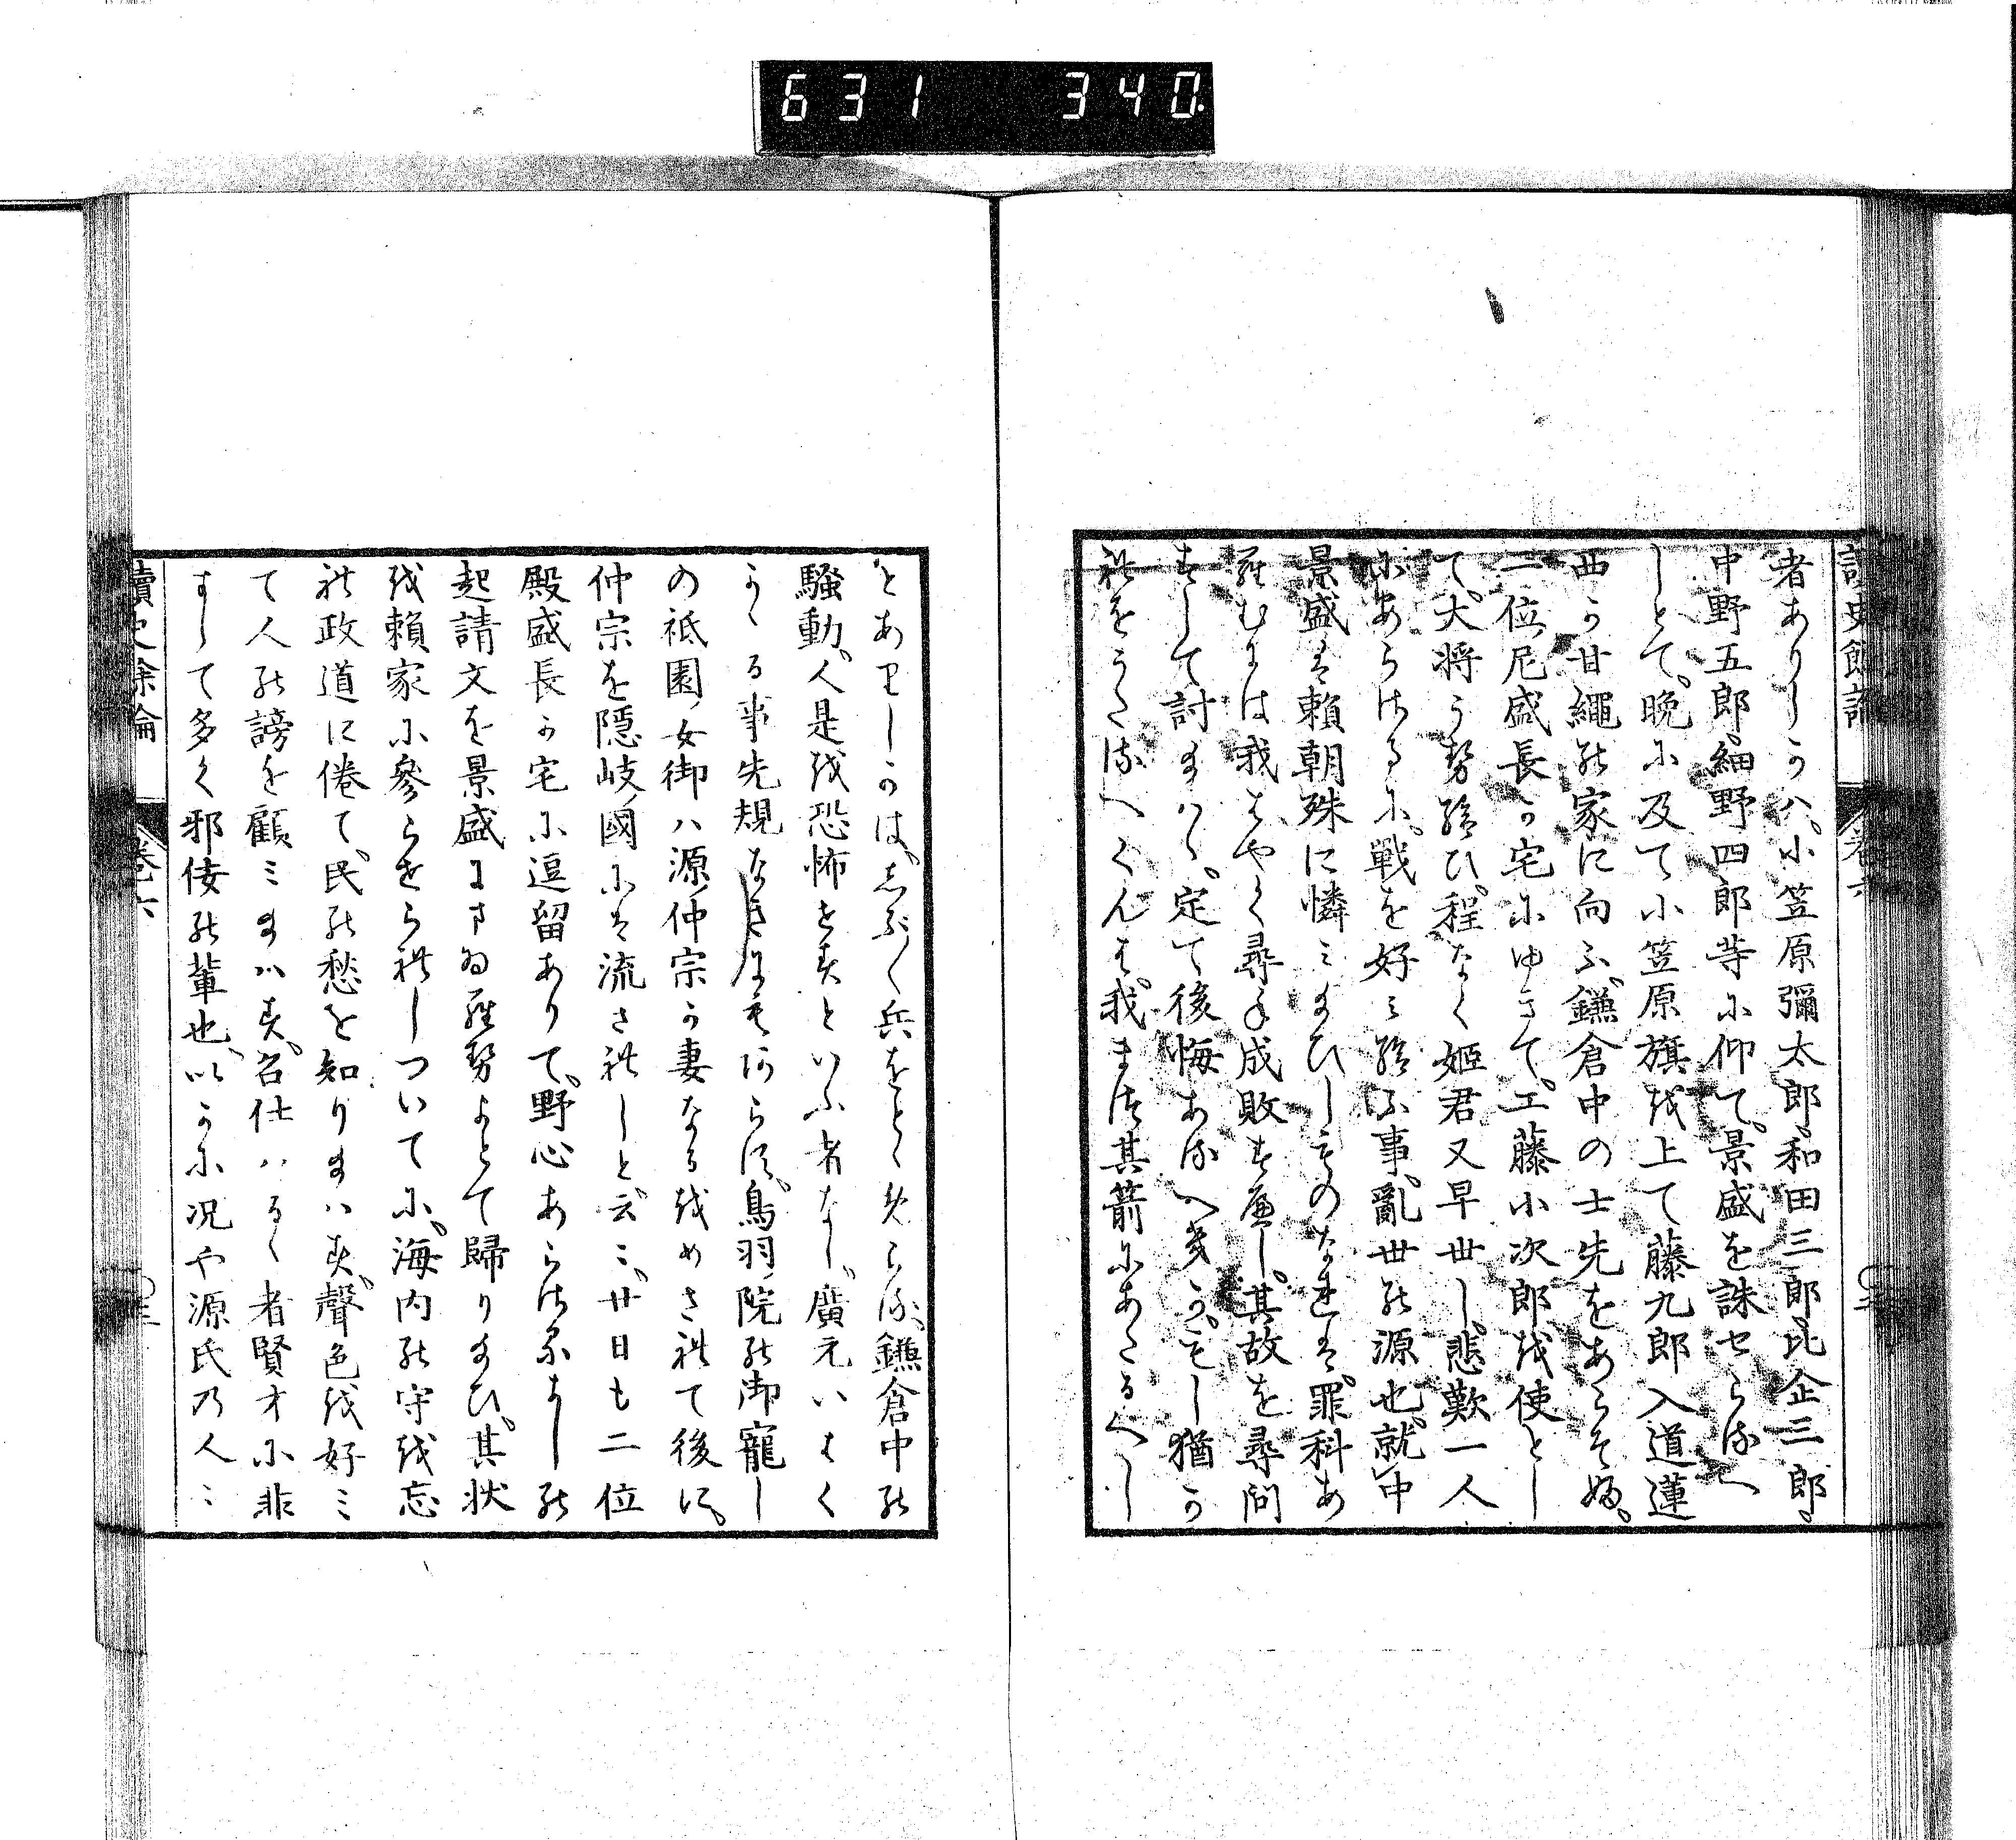 631 340
者ありしかハ、小笠原彌太郎、和田三郎、比企三郎、
中野五郎、細野四郎等に仰て、景盛を誅せらるへ
しとて、晩に及て小笠原旗を上て藤九郎入道蓮
西か甘繩の家に向ふ、鎌倉中の士先をあらそふ、
二位尼盛長か宅にゆきて、工藤小次郎を使とし
て、大将かう勢給ひ、程なく姫君又早世し、悲歎一人
にあらさるに、戦を好ミ給ふ事、亂世の源也、就中
景盛は頼朝殊に憐ミ給ひしものなれは、罪科あ
らむには我はやく尋ね成敗すへし、其故を尋問
すして討給ハヽ、定て後悔あるへきか、もし猶か
れをうたるへくんは、我まつ其箭にあたるへし
とありしかは、しぶ〱兵をとヽめらる、鎌倉中の
騒動、人是を恐怖せすといふ者なし、廣元いはく
かヽる事先規なきにもあらす、鳥羽ノ院の御寵し
の祇園ノ女御ハ源ノ仲宗か妻なるをめされて後に、
仲宗を隠岐ノ國には流されしと云ミ、廿日も二位
殿盛長か宅に逗留ありて、野心あらさるよしの
起請文を景盛にまゐらせよとて歸り給ひ、其状
を頼家に參らせられしついてに、海内の守を忘
れ政道に倦て、民の愁を知り給ハす、聲色を好ミ
て人の謗を顧ミ給ハす、召仕ハるヽ者賢才に非
すして多く邪佞の輩也、いかに况や源氏乃人ミ
讀史餘論
卷六